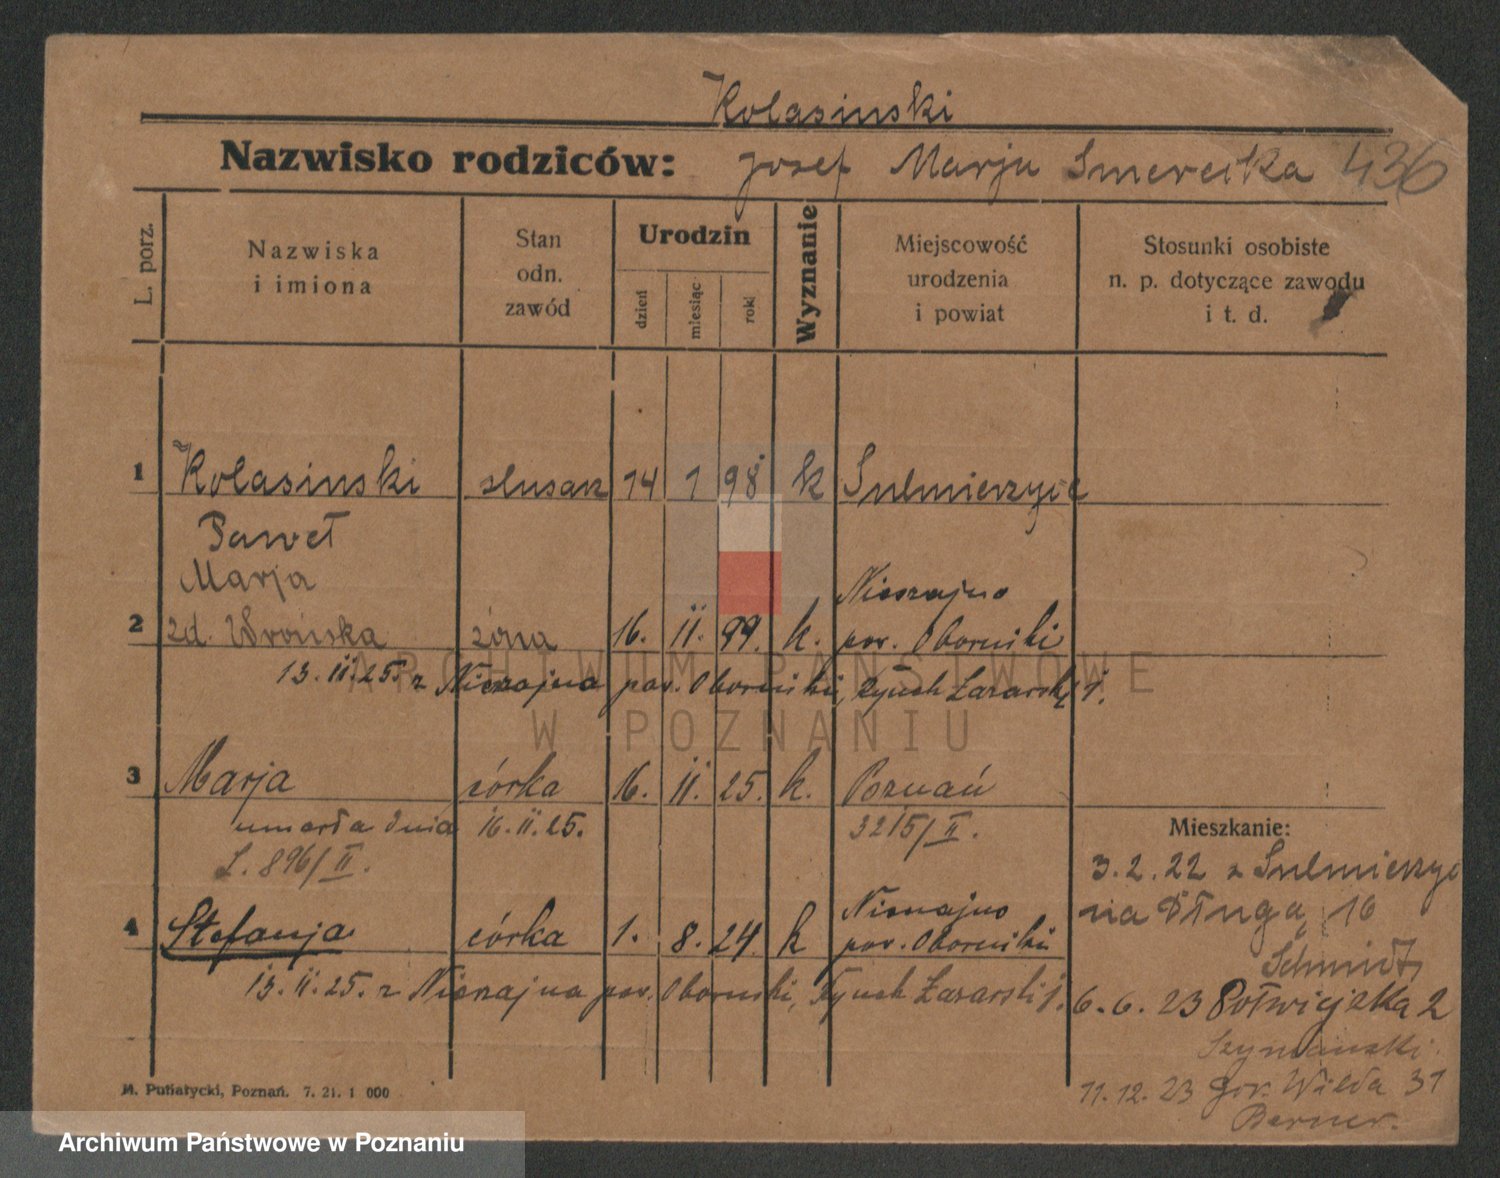 Kolasinski
Nazwisko rodziców: Josef Marju Smereika 436
L. porz.
Nazwiska
i imiona
Stan
odn.
zawód
Urodzin
dzień
miesiąc
rok
Wyznanie
Miejscowość
urodzenia
i powiat
Stosunki osobiste
n. p. dotyczące zawodu
i t. d.
1 Kolasinski slusarz 14 1 98 k Sulmierzyce
Paweł
Marja
Nieszajno
2 zd. Wrońska żona 16. II. 99. k. pow. Oborniki
13. II. 25. z pow. Oborniki, Rynek Łazarski 1.
3 Marja córka 16. II. 25. k. Poznań
umarła dnia 16. II. 25. 3215/II.
L. 896/II.
Mieszkanie:
3. 2. 22 z Sulmierzyc
na Długą 16
Schmidt
6. 6. 23 Półwiejska 2
Szymanski.
11. 12. 23 gór. Wilda 31
Berner.
4 Stefanja córka 1. 8. 24. k pow. Oborniki
13. II. 25. z pow. Oborniki, Rynek Łazarski 1.
M. Putiatycki, Poznań. 7. 21. 1 000
ARCHIWUM PAŃSTWOWE
W POZNANIU
Archiwum Państwowe w Poznaniu